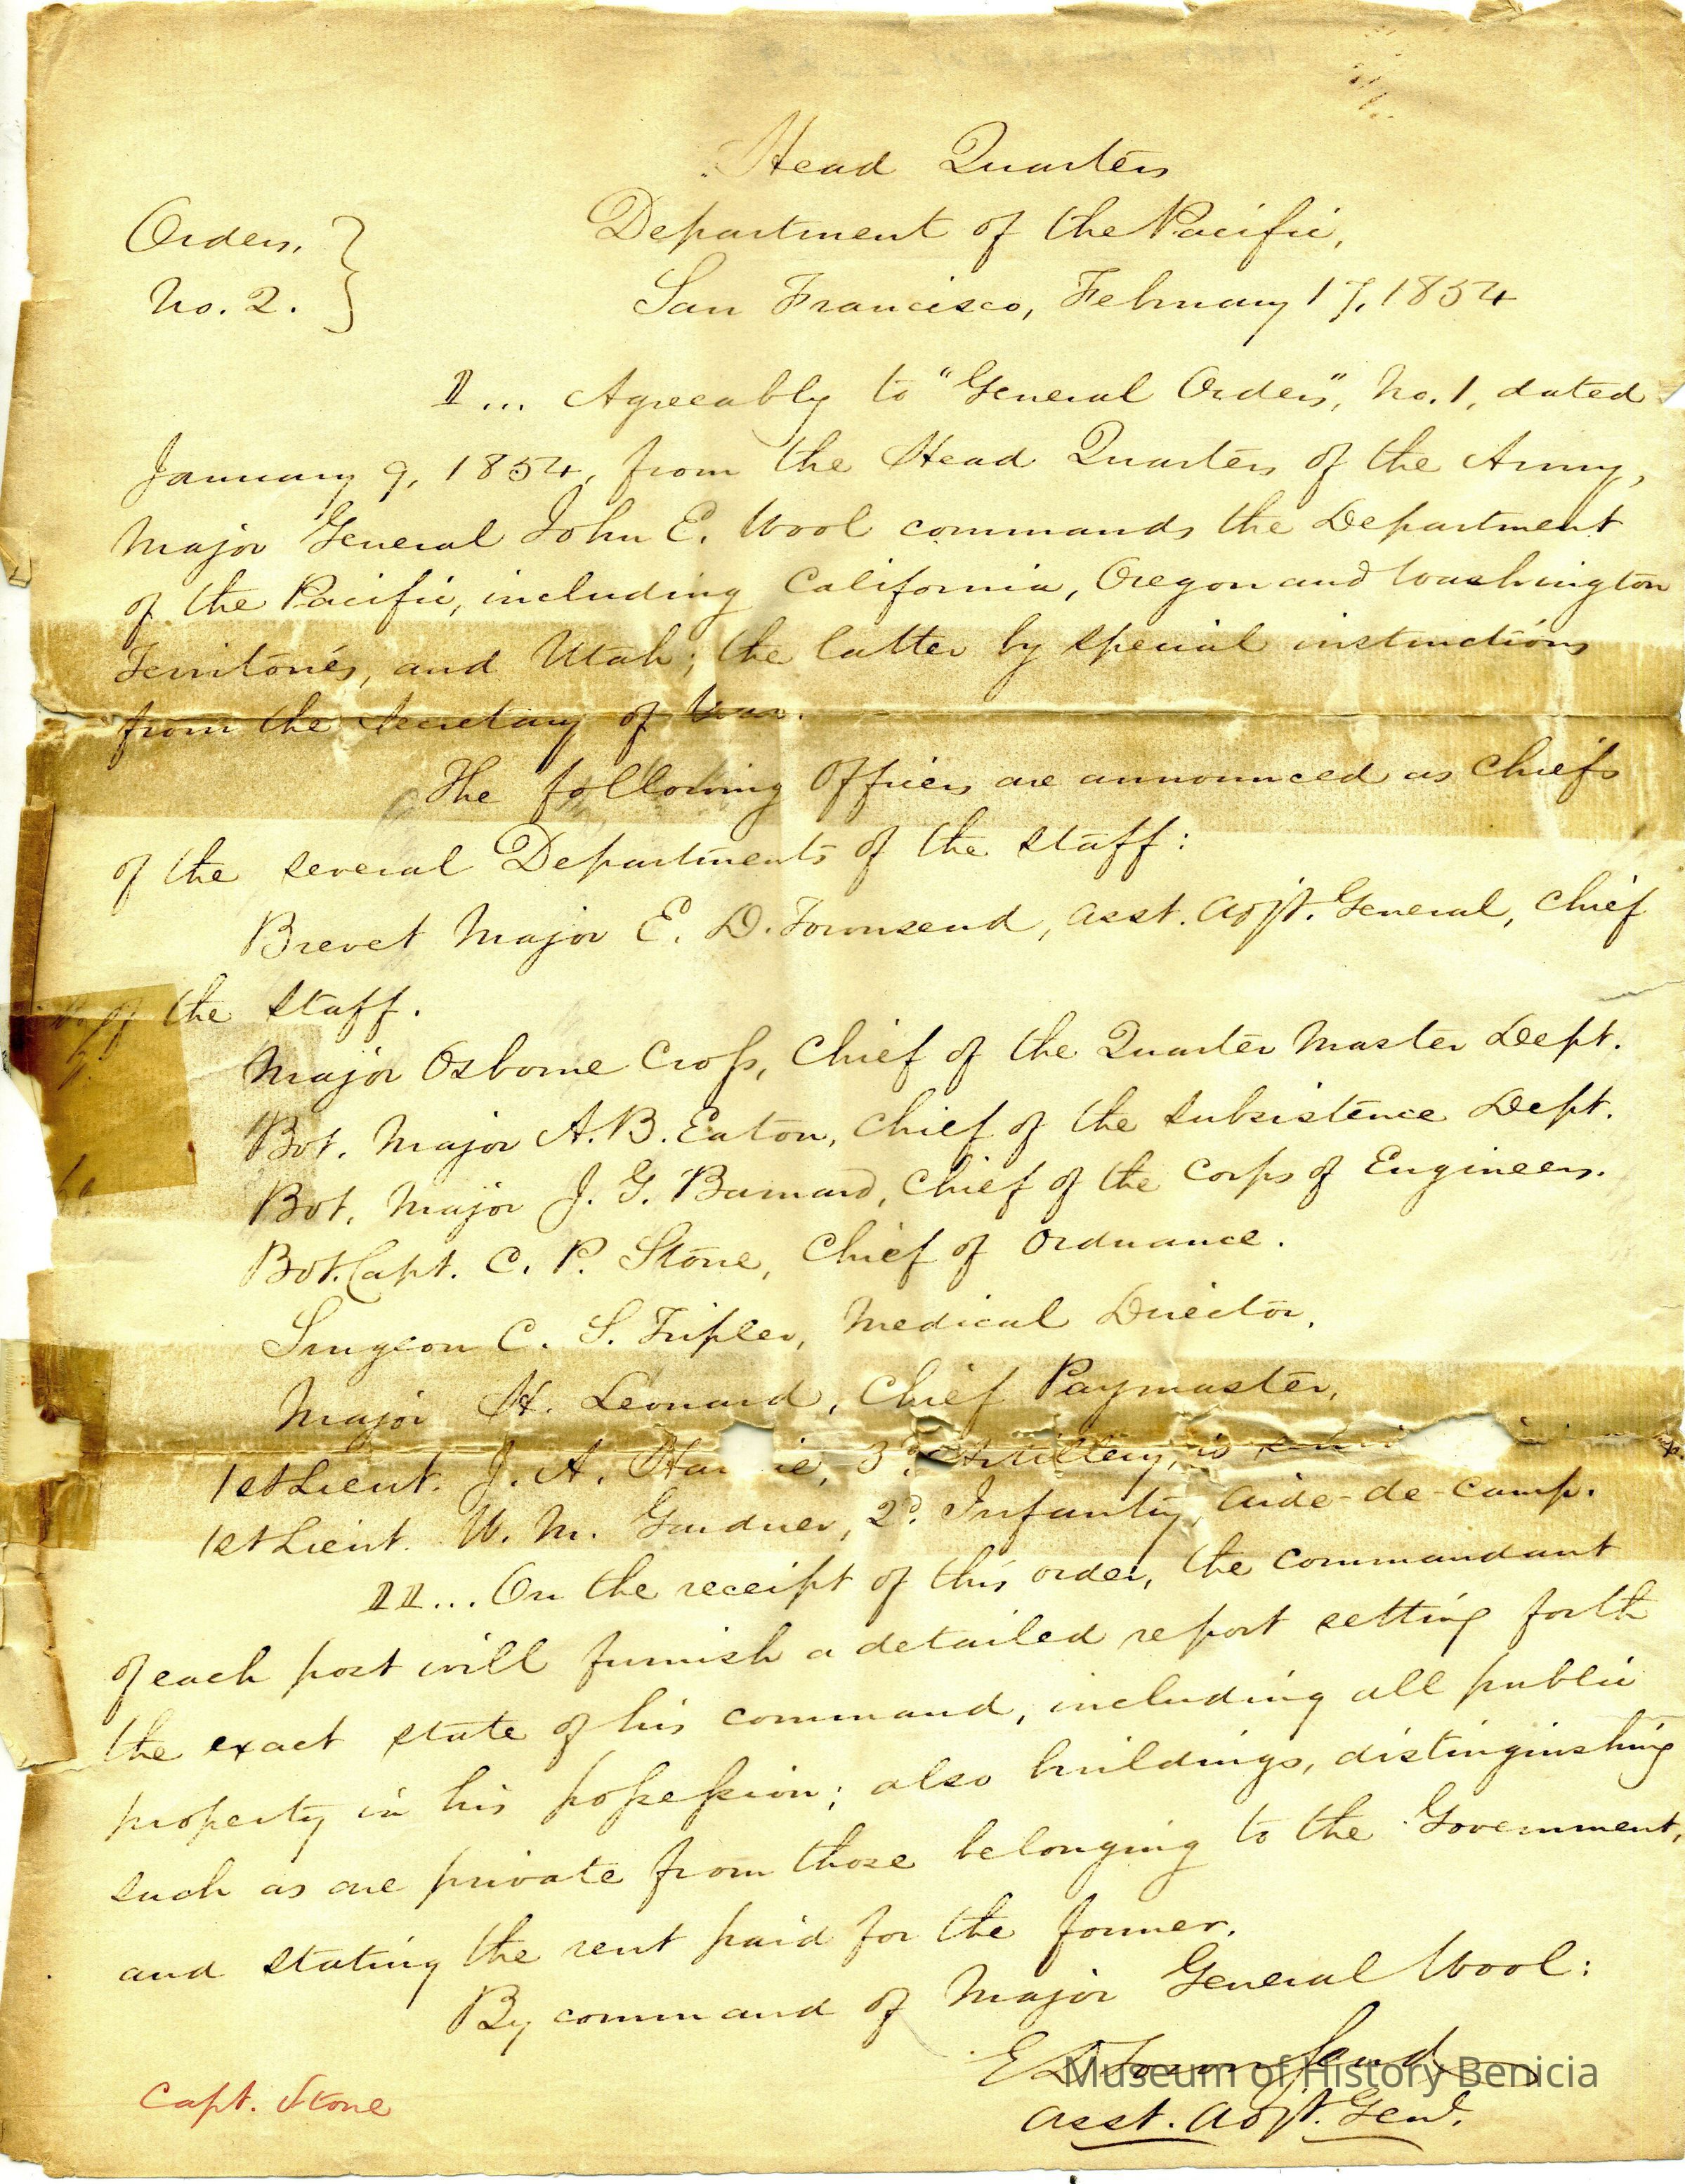 Head Quarters
Orders,
No. 2.
Department of the Pacific,
San Francisco, February 17, 1854
I... Agreeably to "General Orders", No. 1, dated
January 9, 1854, from the Head Quarters of the Army,
Major General John E. Wool commands the Department
of the Pacific, including California, Oregon and Washington
Territories, and Utah; the latter by special instructions
from the Secretary of War.
The following Officers are announced as chiefs
of the several Departments of the staff:
Brevet Major E. D. Townsend, Asst. Adjt. General, Chief
of the staff.
Major Osborne Cross, Chief of the Quarter Master Dept.
Bvt. Major A. B. Eaton, Chief of the Subsistence Dept.
Bvt. Major J. G. Barnard, Chief of the Corps of Engineers.
Bvt. Capt. C. P. Stone, Chief of Ordnance.
Surgeon C. S. Tripler, Medical Director.
Major H. Leonard, Chief Paymaster.
1st Lieut. J. A. Har ie, 3d. Artillery, is
1st Lieut. W. M. Gardner, 2d. Infantry, Aide-de-camp.
II... On the receipt of this order, the commandant
of each post will furnish a detailed report setting forth
the exact state of his command, including all public
property in his possession; also buildings, distinginshing
such as are private from those belonging to the Government,
and stating the rent paid for the former.
By command of Major General Wool:
E D Townsend
Asst. Adjt. Genl.
Capt. Stone
Museum of History Benicia